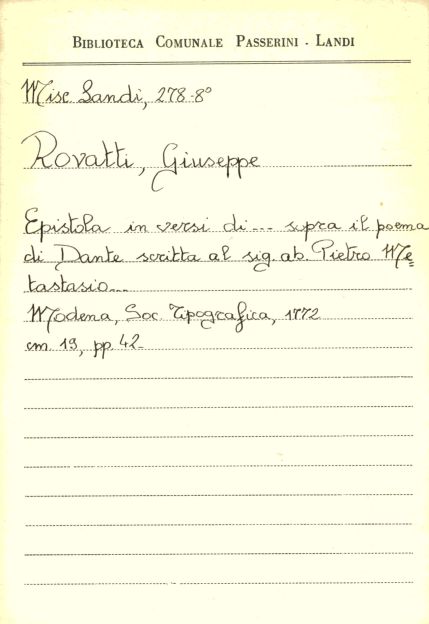 BIBLIOTECA COMUNALE PASSERINI - LANDI
Misc Landi, 278-8°
Rovatti, Giuseppe
Epistola in versi di... sopra il poema
di Dante scritta al sig. ab. Pietro Me=
tastasio...
Modena, Soc Tipografica, 1772
cm 19, pp 42-